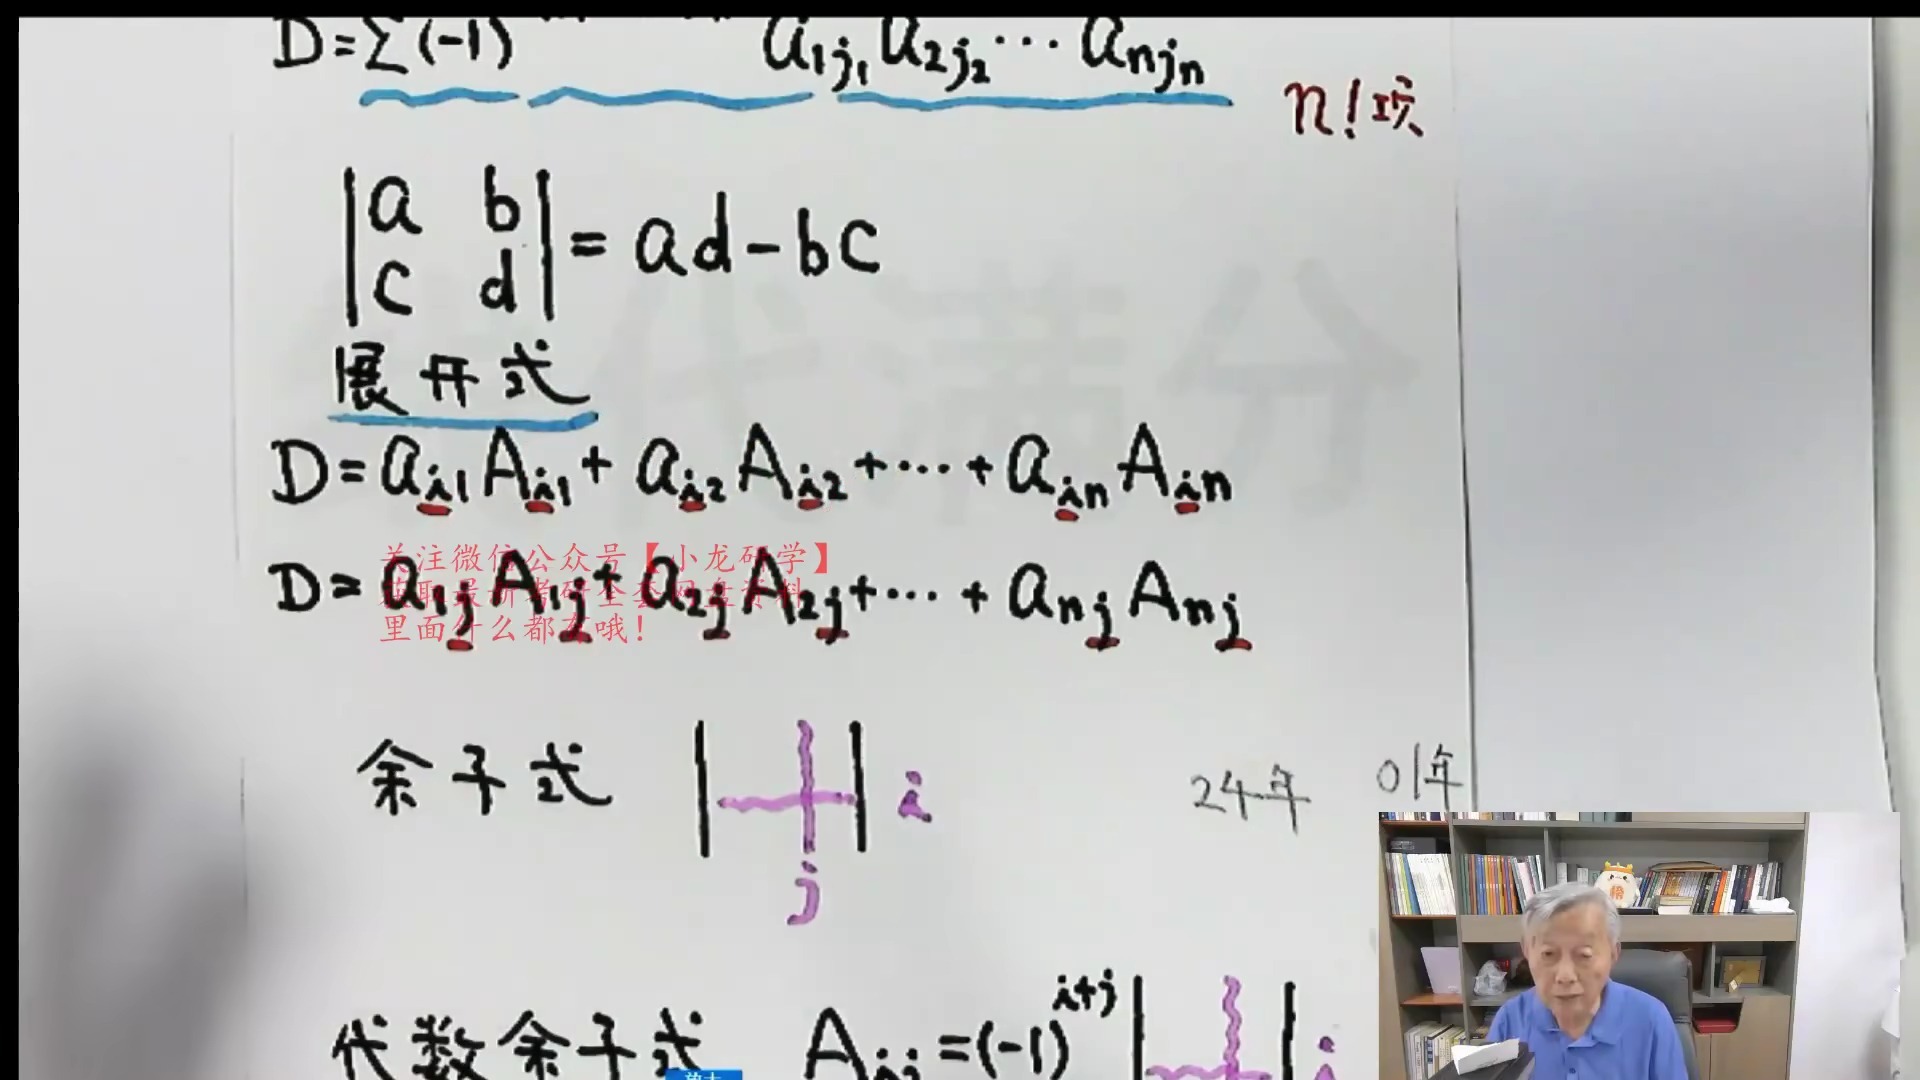 D=∑(-1) a₁ⱼ₁a₂ⱼ₂⋯aₙⱼₙ
n!项
|a b|
|c d| = ad-bc
展开式
D=aᵢ₁Aᵢ₁+aᵢ₂Aᵢ₂+⋯+aᵢₙAᵢₙ
关注微信公众号【小龙研学】
获取最新考研全套网盘资料
里面什么都有哦!
D=a₁ⱼA₁ⱼ+a₂ⱼA₂ⱼ+⋯+aₙⱼAₙⱼ
余子式 i
j
24年 01年
代数余子式 Aᵢⱼ=(-1)ⁱ⁺ʲ i
代满分